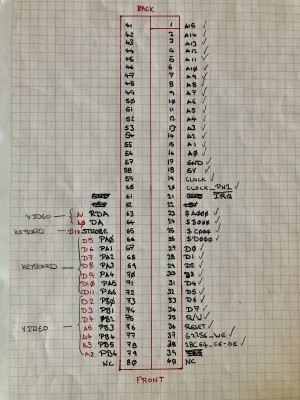 BACK
41 1 A15
42 2 A14
43 3 A13
44 4 A12
45 5 A11
46 6 A10
47 7 A9
48 8 A8
49 9 A7
50 10 A6
51 11 A5
52 12 A4
53 13 A3
54 14 A2
55 15 A1
56 16 A0
57 17 GND
58 18 5V
59 19 CLOCK
60 20 CLOCK_PH2
61 21 IRQ
62 22
VIDEO RDA 63 23 $A000
DA 64 24 $8000
KEYBOARD D12 STROBE 65 25 $C000
D5 PA0 66 26 $D000
D6 PA1 67 27 D0
D7 PA2 68 28 D1
KEYBOARD D8 PA3 69 29 D2
D9 PA4 70 30 D3
D10 PA5 71 31 D4
D11 PA6 72 32 D5
D2 PB0 73 33 D6
D3 PB1 74 34 D7
D4 PB2 75 35 R/W
VIDEO A5 PB3 76 36 RESET
A4 PB4 77 37 62256_WE
A3 PB5 78 38 28C64_CE-OE
A2 PB6 79 39
NC 80 40 NC
FRONT